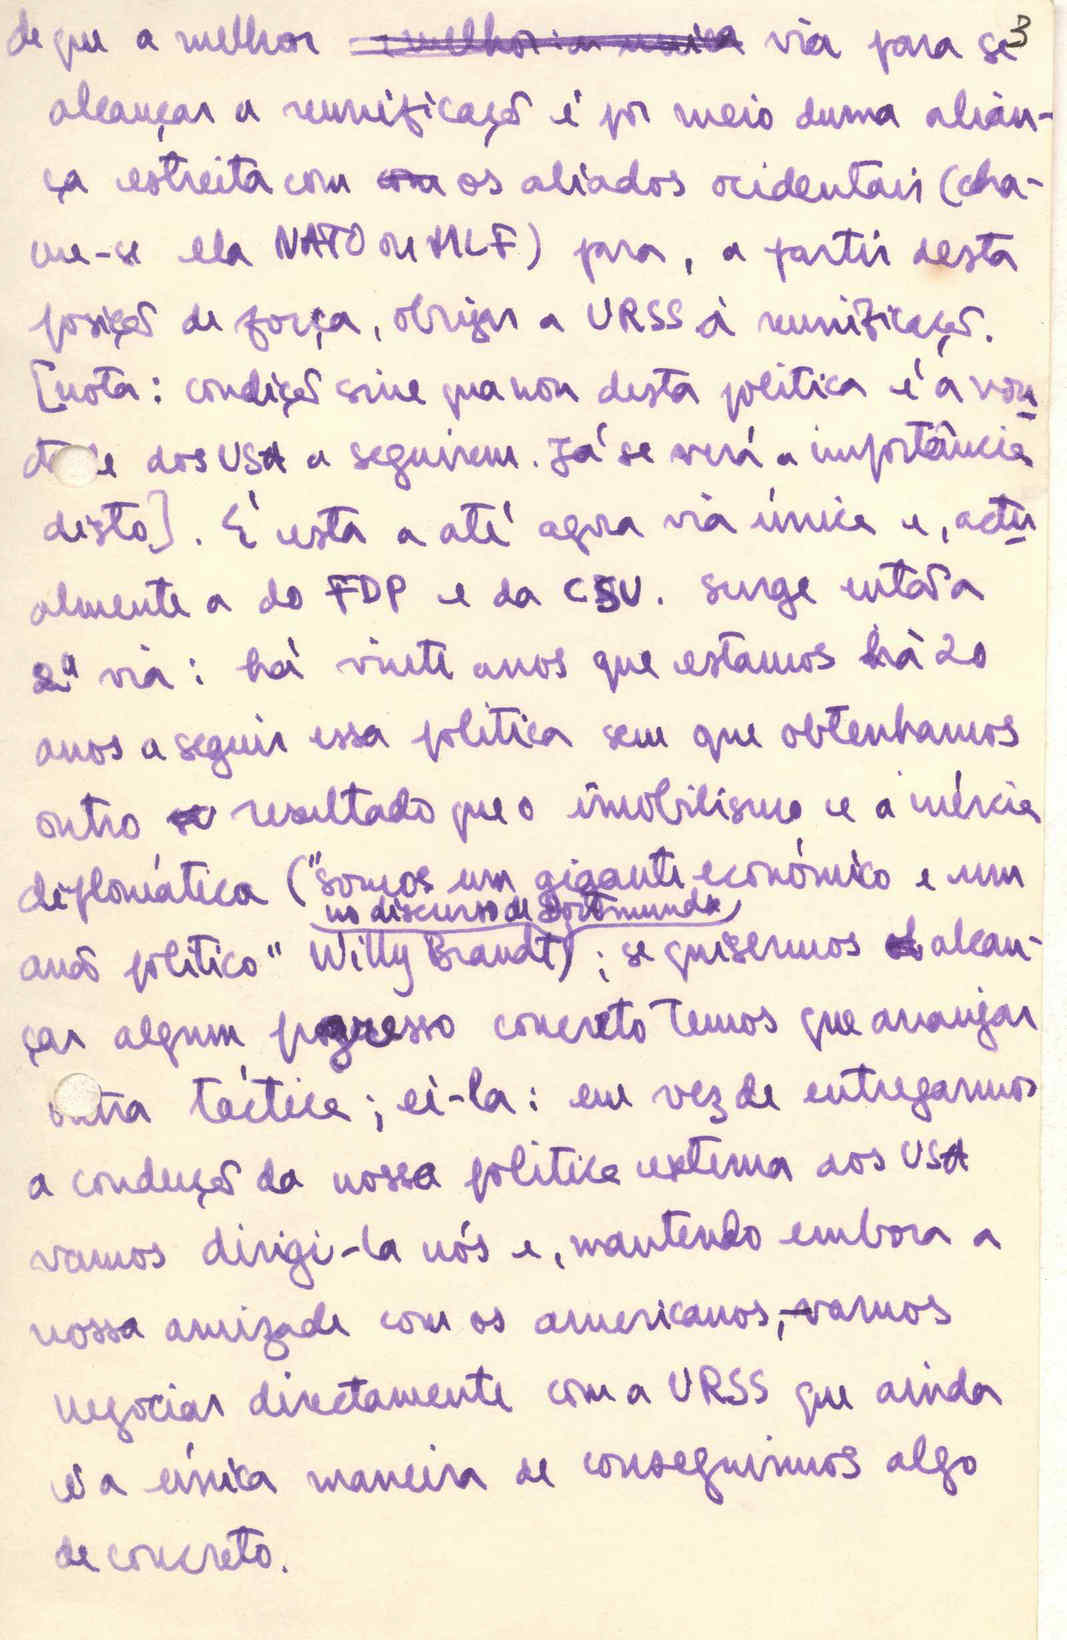 3
de que a melhor via para se
alcançar a reunificação é por meio duma alian-
ça estreita com os aliados ocidentais (cha-
me-se ela NATO ou MLF) para, a partir desta
posição de força, obrigar a URSS à reunificação.
[nota: condição sine qua non desta politica é a von
dade dos USA a seguirem. Já se verá a importância
disto]. É esta a até agora via única e, actu
almente a do FDP e da CSU. Surge então a
2ª via: há vinte anos que estamos há 20
anos a seguir essa politica sem que obtenhamos
outro resultado que o imobilismo e a inércia
diplomática ("somos um gigante económico e um
no discurso de Dortmund
anão politico" Willy Brandt); se quisermos alcan-
çar algum progresso concreto temos que arranjar
outra táctica; ei-la: em vez de entregarmos
a condução da nossa politica externa aos USA
vamos dirigi-la nós e, mantendo embora a
nossa amizade com os americanos, vamos
negociar directamente com a URSS que ainda
é a única maneira de conseguirmos algo
de concreto.